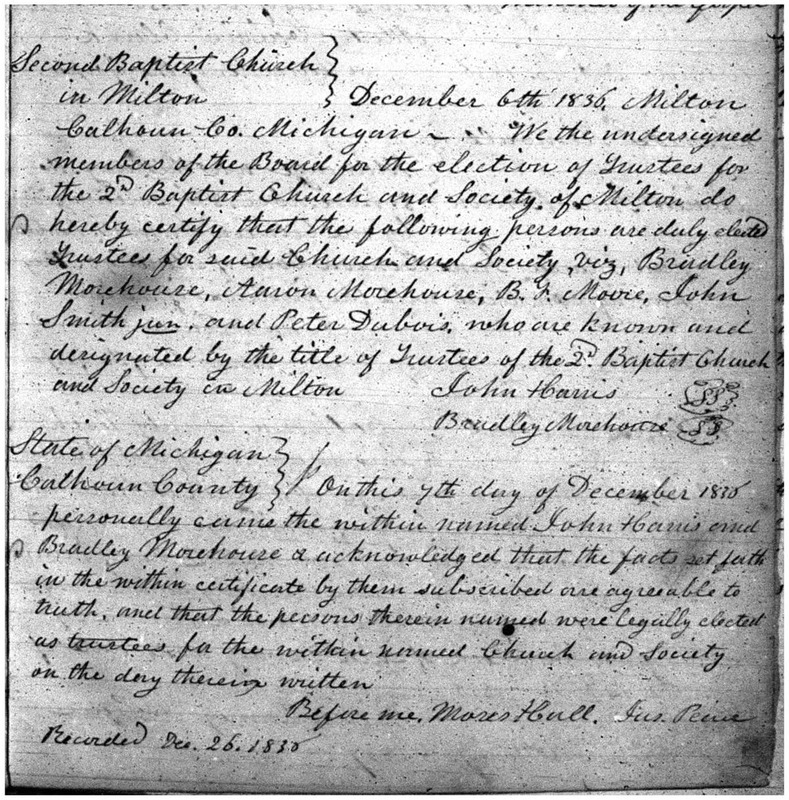 of the Gospel
Second Baptist Church
in Milton } December 6th 1836, Milton
Calhoun Co. Michigan - We the undersigned
members of the Board for the election of Trustees for
the 2d Baptist Church and Society of Milton do
hereby certify that the following persons are duly elected
Trustees for said Church and Society viz, Bradley
Morehouse, Aaron Morehouse, B. F. Moore, John
Smith jun. and Peter Dubois, who are known and
designated by the title of Trustees of the 2d. Baptist Church
and Society in Milton John Harris
Bradley Morehouse
State of Michigan
Calhoun County } On this 7th day of December 1836
personally came the within named John Harris and
Bradley Morehouse & acknowledged that the facts set forth
in the within certificate by them subscribed are agreeable to
truth, and that the persons therein named were legally elected
as trustees for the within named Church and Society
on the day therein written
Before me, Moses Hall. Jus. Peace
Recorded Dec. 26. 1836